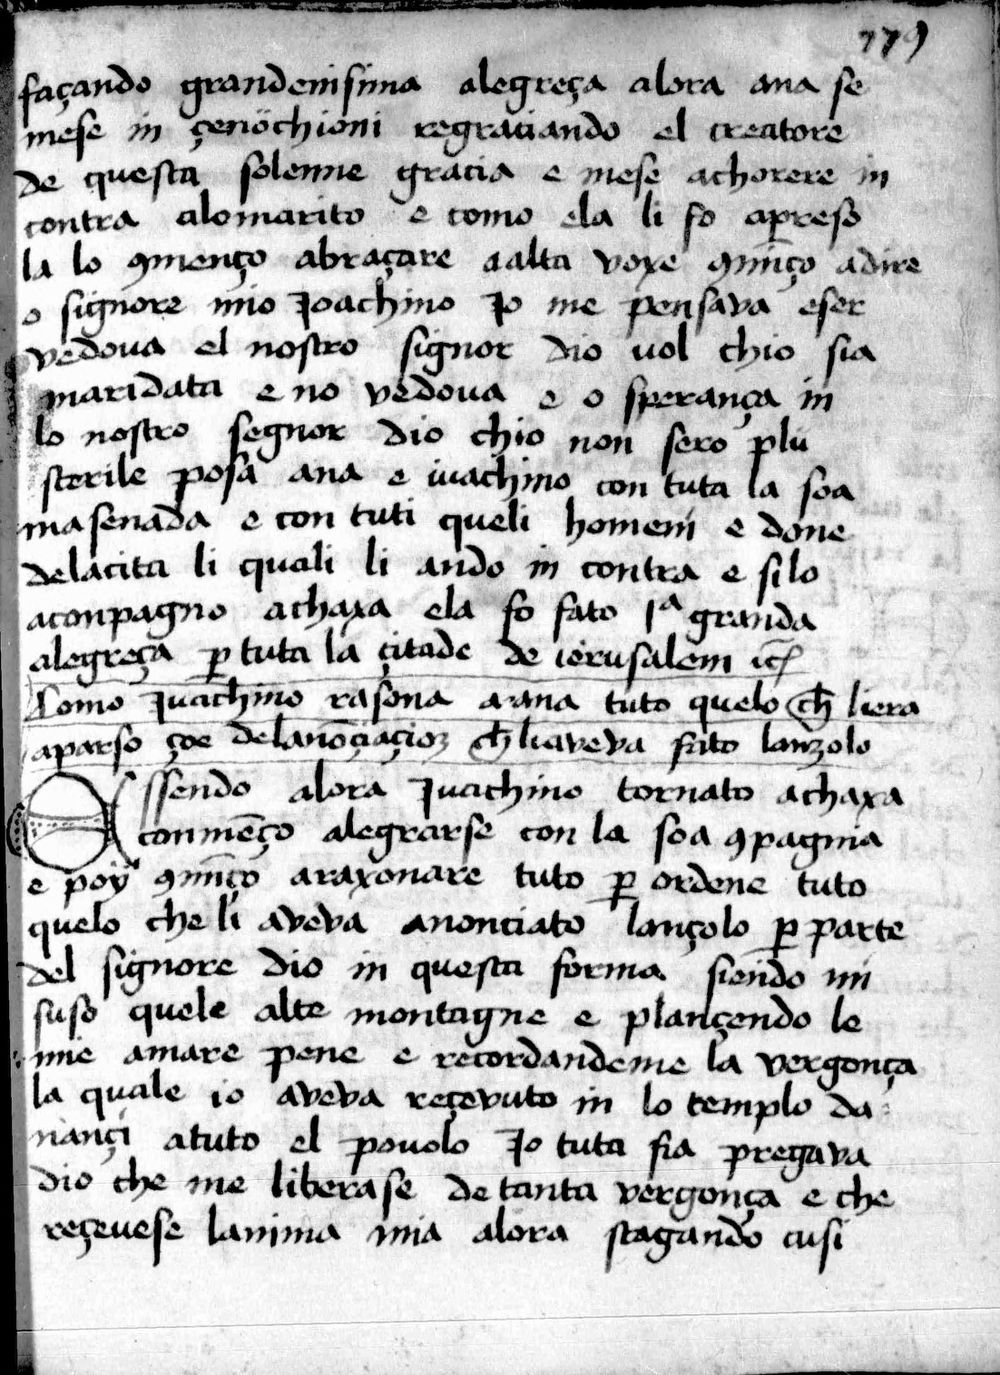 779
façando grandenisima alegreça alora ana se
mese in çenochioni regraciando el creatore
de questa solenne gracia e mese achorere in
contra alomarito e como ela li fo apreso
la lo 9menço abraçare aalta voxe 9mẽço adire
o signore mio Joachino Jo me pensava eser
vedova el nostro signor dio uol chio sia
maridata e no vedoua e o sperança in
lo nostro segnor dio chio non sero plu
sterile posa ana e iuachino con tuta la soa
masenada e con tuti queli homeni e done
delacita li quali li ando in contra e silo
aconpagno achaxa ela fo fato Jª granda
alegreça ꝑ tuta la çitade de ierusalem
Como Juachino rasona a ana tuto quelo ch̃ liera
aparso çoe delanõçaçioꝫ ch̃ liaveva fato lanzolo
Essendo alora Juachino tornato achaxa
conmẽço alegrarse con la soa 9pagnia
e poy 9mẽço araxonare tuto ꝑ ordene tuto
quelo che li aveva anonciato lançolo ꝑ parte
del signore dio in questa forma siendo mi
suso quele alte montagne e plançendo le
mie amare pene e recordandeme la vergonça
la quale io aveva reçevuto in lo templo da
nançi atuto el pouolo Jo tuta fia pregava
dio che me liberase de tanta vergonça e che
reçeuese lanima mia alora stagando cusi